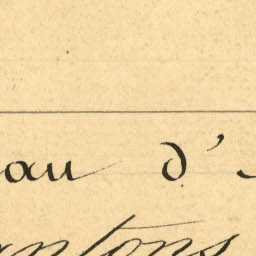 au d'
antons